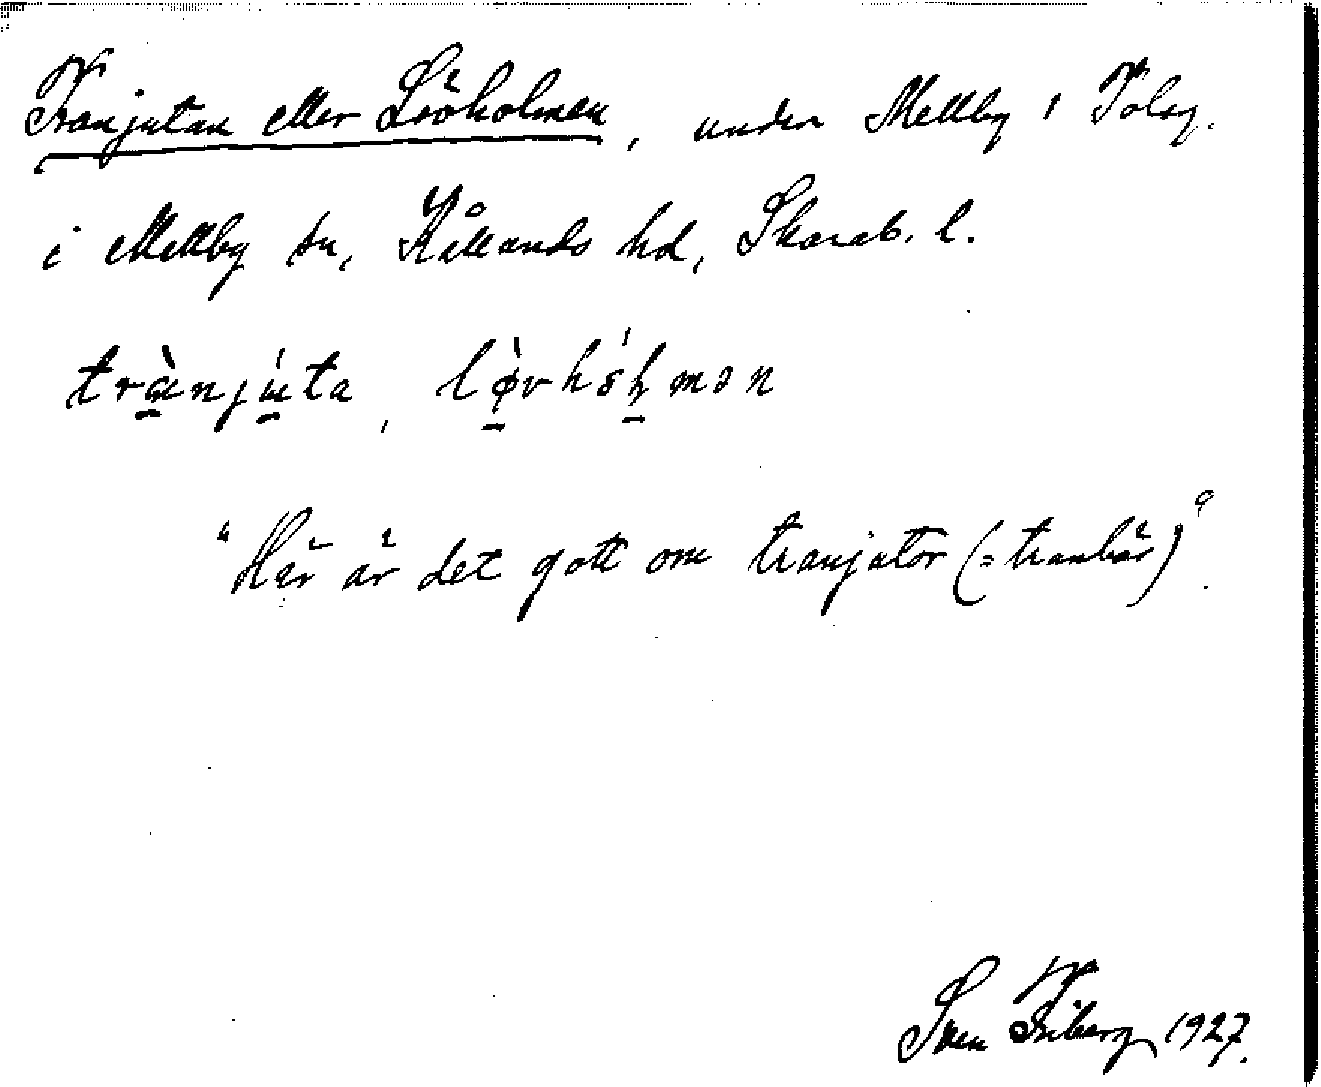 Tranjutan eller Lövholmen, under Mellby 1 Tolsg.
i Mellby sn, Kållands hd, Skarab. l.
trànjúta, lø̀vhólmən
"Här är det gott om tranjutor (= tranbär)".
Sven Friberg 1927.